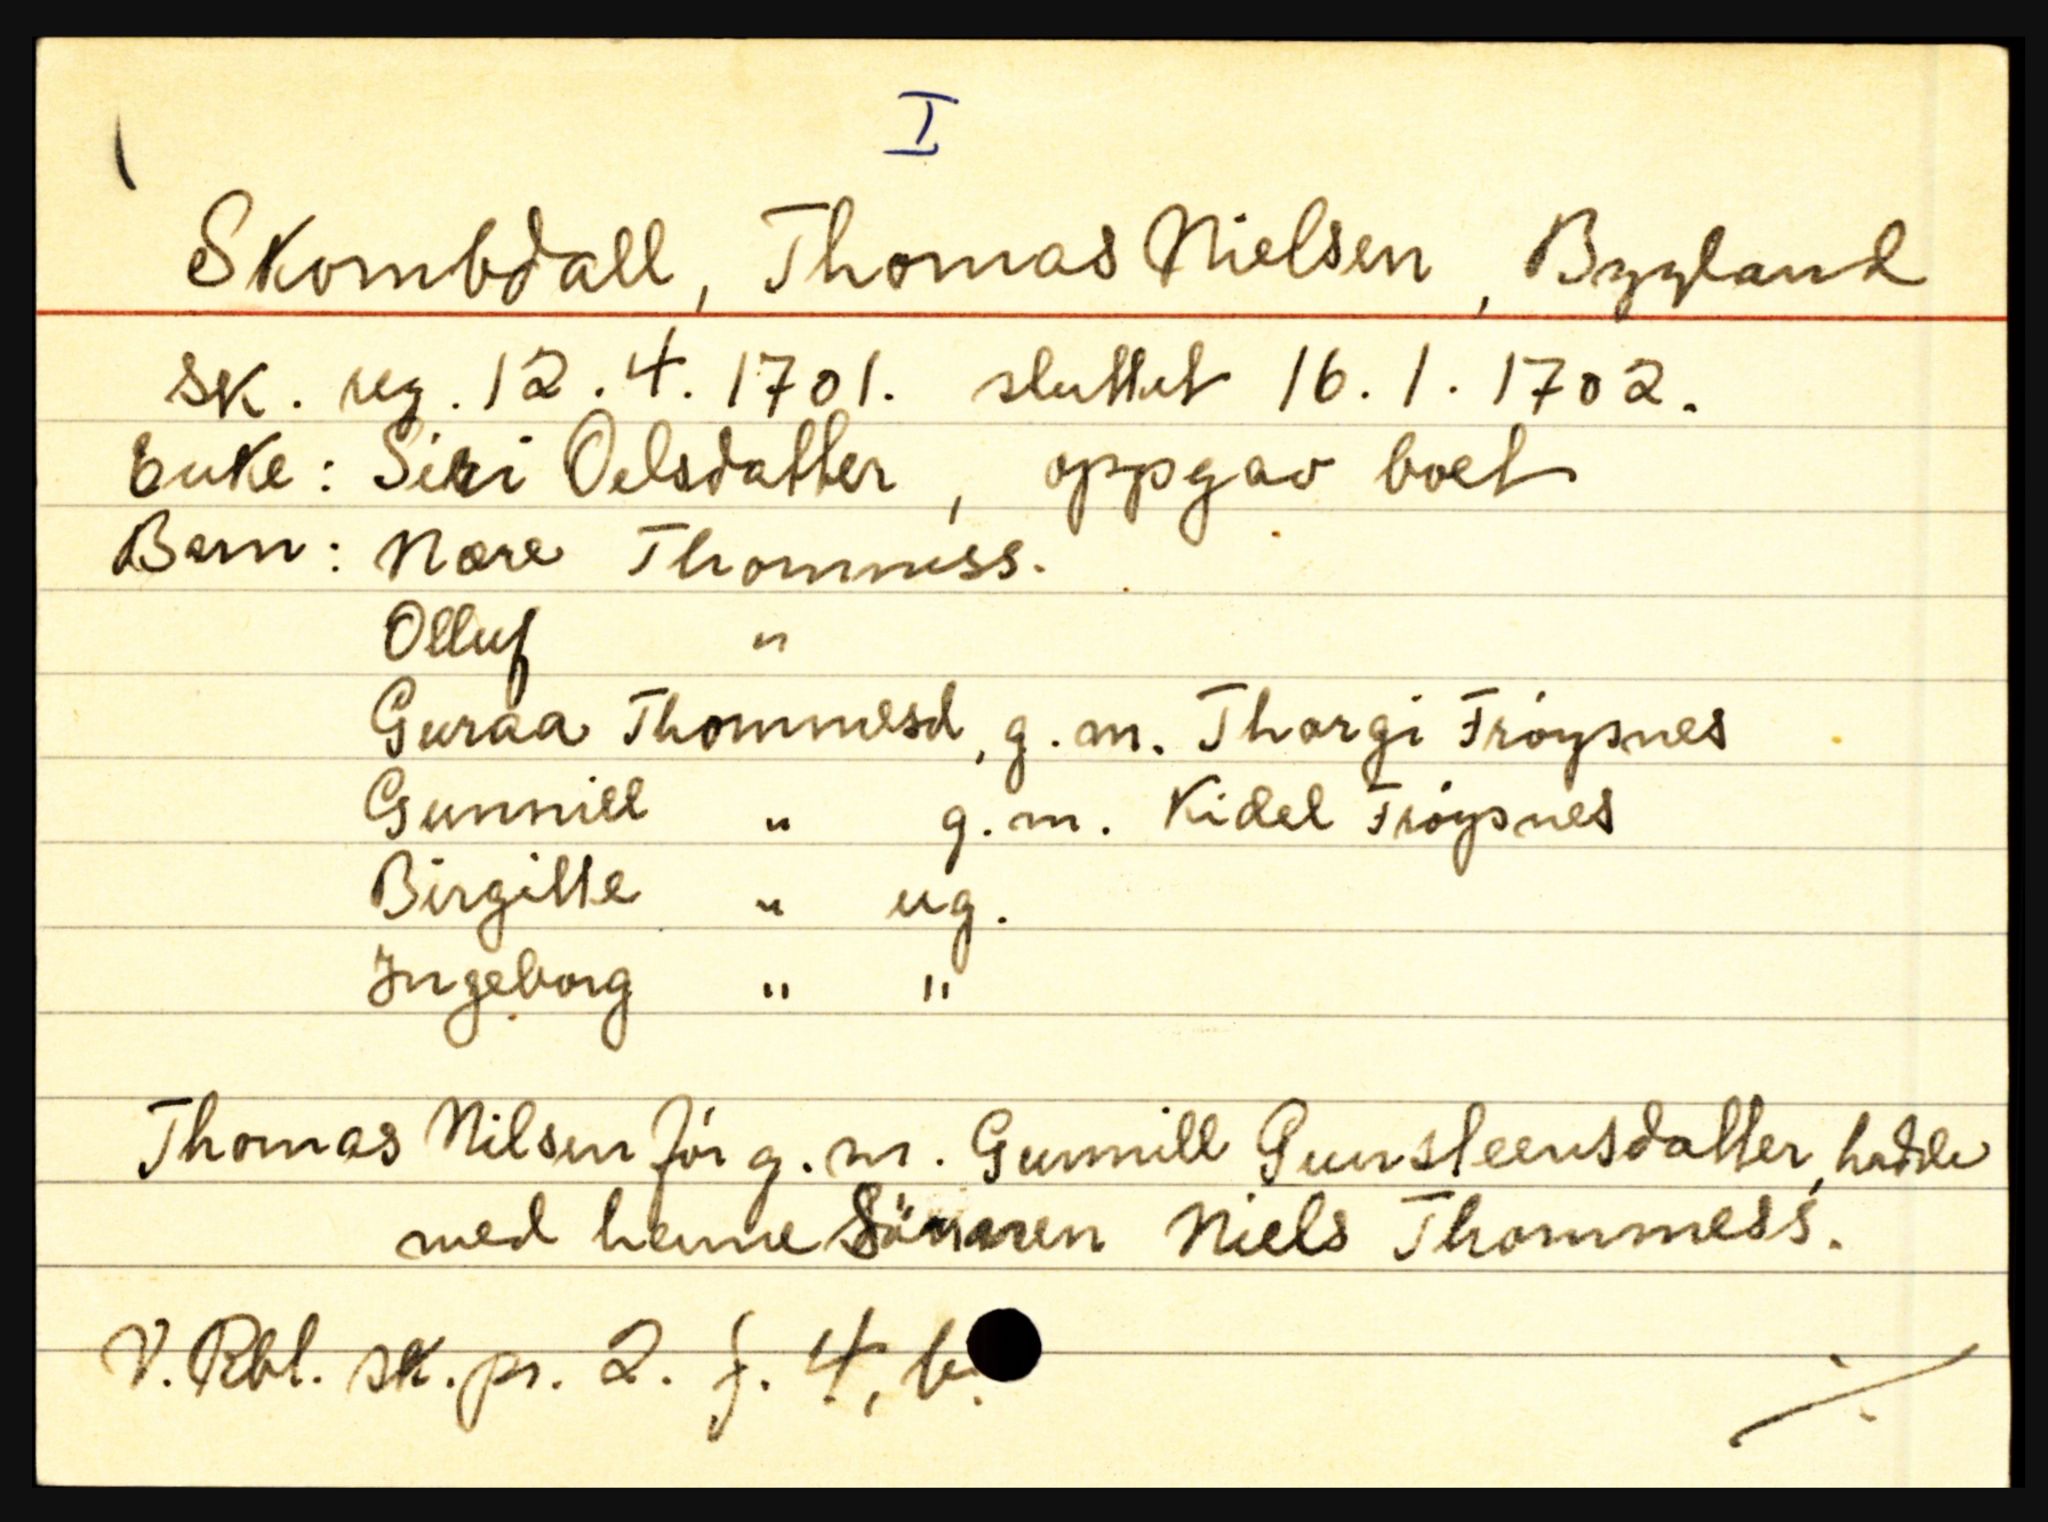 I
Skombdall, Thomas Nielsen, Bygland
sk. reg. 12.4.1701. sluttet 16.1.1702.
Enke: Siri Oelsdatter, oppgav boet
Barn: Nore Thommess.
Olluf "
Guraa Thommesd, g.m. Thorgi Fröysnes
Gunnill " g.m. Kidel Fröysnes
Birgitte " ug.
Ingeborg " "
Thomas Nilsen för g.m. Gunnill Gunsteensdatter, hadde
med henne Niels Thommess.
V. Rbl. sk. pr. 2. f. 4, b.